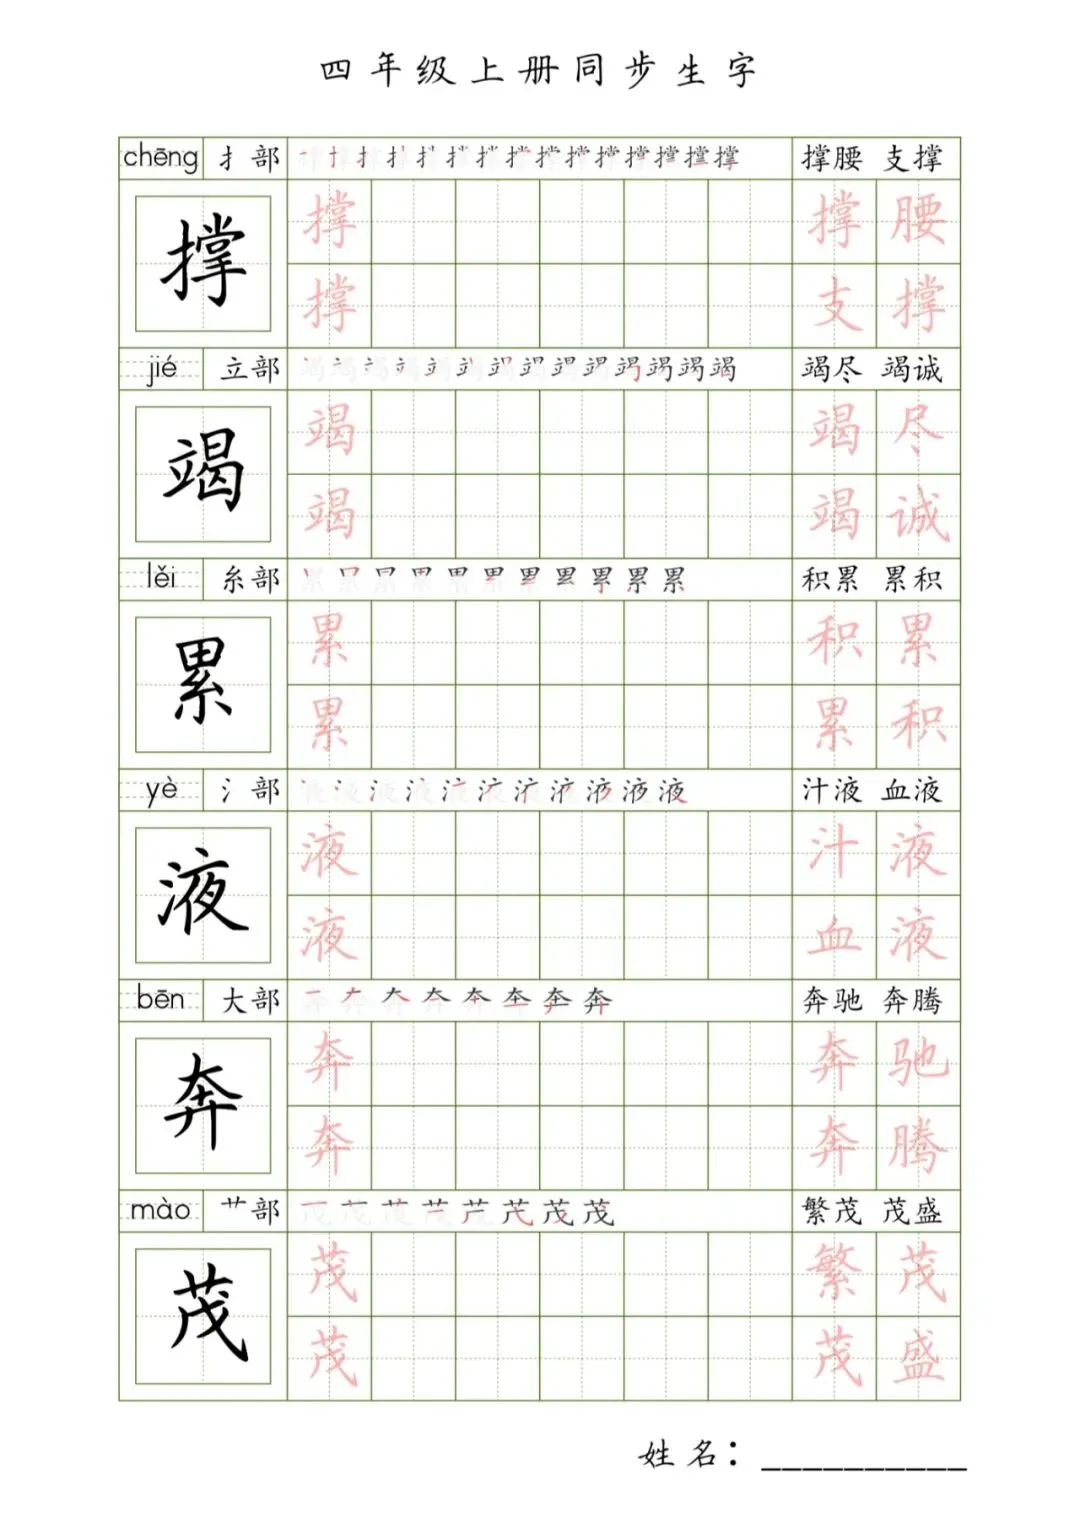 四年级上册同步生字
chēng 扌部 撑腰 支撑
撑 撑 撑 腰
撑 支 撑
jié 立部 竭尽 竭诚
竭 竭 竭 尽
竭 竭 诚
lěi 糸部 积累 累积
累 累 积 累
累 累 积
yè 氵部 汁液 血液
液 液 汁 液
液 血 液
bēn 大部 奔驰 奔腾
奔 奔 奔 驰
奔 奔 腾
mào 艹部 繁茂 茂盛
茂 茂 繁 茂
茂 茂 盛
姓名：__________